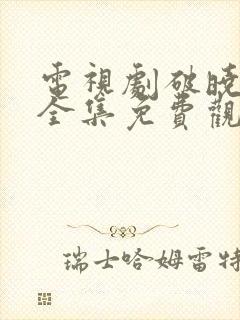 電視劇破曉
全集免費觀
瑞士哈姆雷特